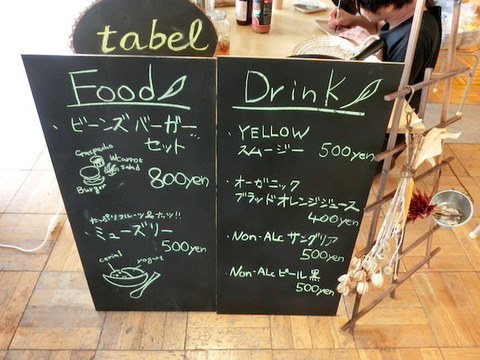 tabel
Food
・ビーンズバーガー
セット
Gazpacho
W carrot
salad
Burger
800yen
たっぷりフルーツ&ナッツ!!
・ミューズリー
500yen
cerial
yogurt
Drink
・YELLOW
スムージー 500yen
・オーガニック
ブラッドオレンジジュース
400yen
・Non-Alc サングリア
500yen
・Non-Alc ビール 黒
500yen